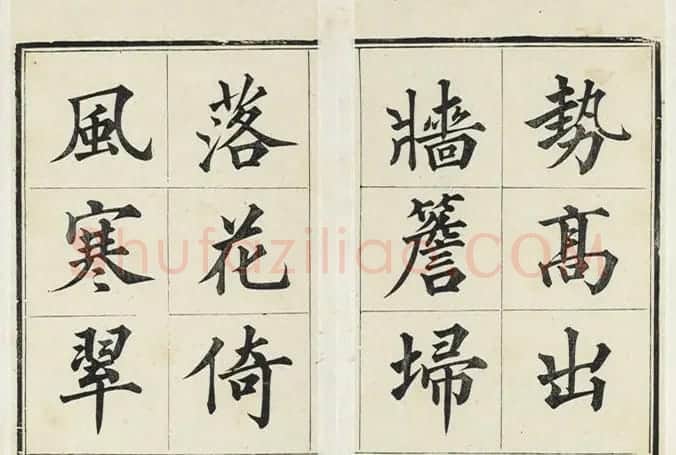 勢髙出
牆簷埽
落花倚
風寒翠
Shufaziliao.COM